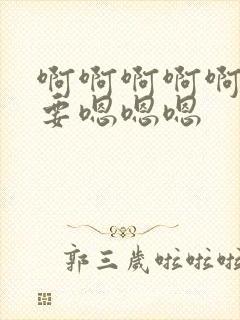 啊啊啊啊啊
要嗯嗯嗯
郭三岁啦啦啦